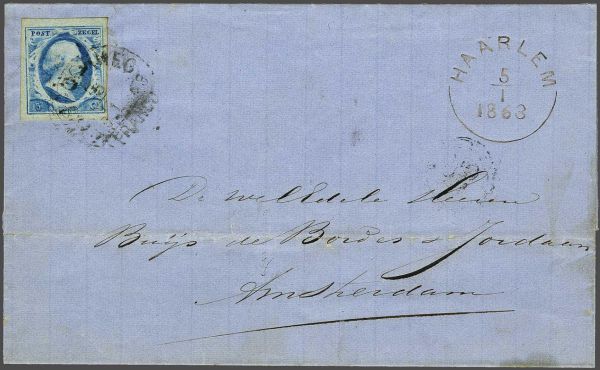 POST ZEGEL
HAARLEM
5
1
1863
De WelEdele Heeren
Buijs de Bordes & Jordaan
Amsterdam